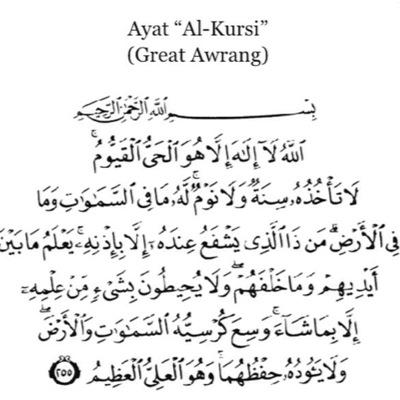 Ayat “Al-Kursi”
(Great Awrang)
بِسْمِ اللَّهِ الرَّحْمَٰنِ الرَّحِيمِ
اللَّهُ لَا إِلَٰهَ إِلَّا هُوَ الْحَيُّ الْقَيُّومُ ۚ
لَا تَأْخُذُهُ سِنَةٌ وَلَا نَوْمٌ ۚ لَّهُ مَا فِي السَّمَاوَاتِ وَمَا
فِي الْأَرْضِ ۗ مَن ذَا الَّذِي يَشْفَعُ عِندَهُ إِلَّا بِإِذْنِهِ ۚ يَعْلَمُ مَا بَيْنَ
أَيْدِيهِمْ وَمَا خَلْفَهُمْ ۖ وَلَا يُحِيطُونَ بِشَيْءٍ مِّنْ عِلْمِهِ
إِلَّا بِمَا شَاءَ ۚ وَسِعَ كُرْسِيُّهُ السَّمَاوَاتِ وَالْأَرْضَ ۖ
وَلَا يَئُودُهُ حِفْظُهُمَا ۚ وَهُوَ الْعَلِيُّ الْعَظِيمُ ٢٥٥